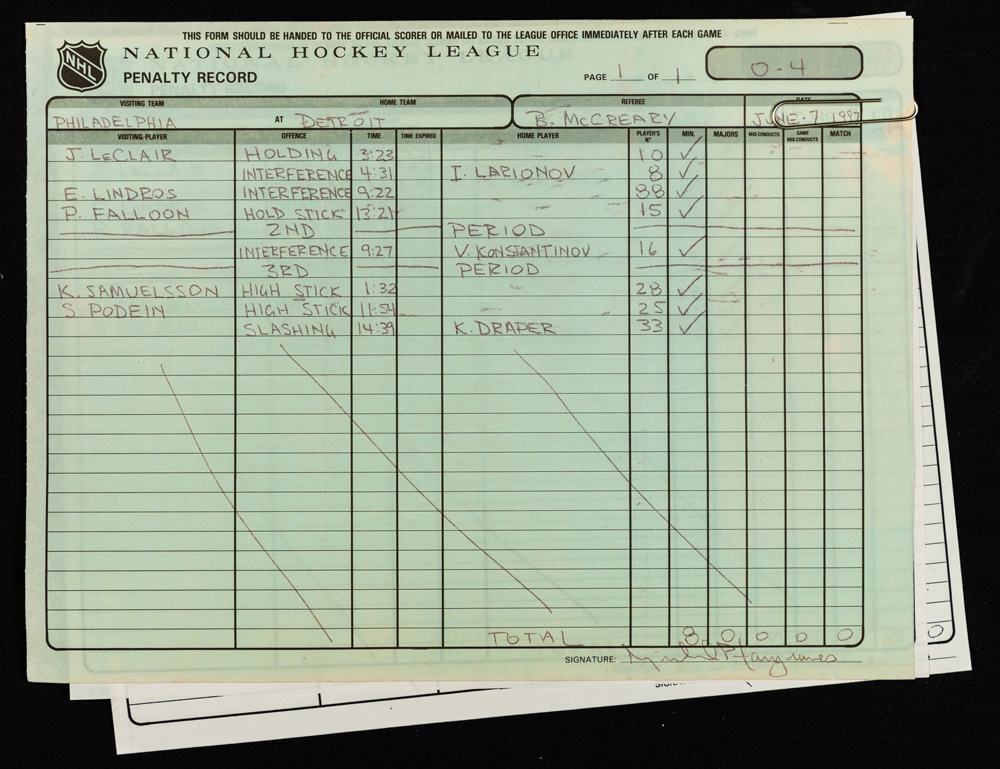 THIS FORM SHOULD BE HANDED TO THE OFFICIAL SCORER OR MAILED TO THE LEAGUE OFFICE IMMEDIATELY AFTER EACH GAME
NHL NATIONAL HOCKEY LEAGUE
PENALTY RECORD PAGE 1 OF 1 0-4
VISITING TEAM HOME TEAM REFEREE DATE
PHILADELPHIA AT DETROIT B. McCREARY JUNE-7 1997
VISITING PLAYER OFFENCE TIME TIME EXPIRED HOME PLAYER PLAYER'S N° MIN. MAJORS MISCONDUCTS GAME MISCONDUCTS MATCH
J. LECLAIR HOLDING 3:23 10 ✓
INTERFERENCE 4:31 I. LARIONOV 8 ✓
E. LINDROS INTERFERENCE 9:22 88 ✓
P. FALLOON HOLD STICK 13:21 15 ✓
2ND PERIOD
INTERFERENCE 9:27 V. KONSTANTINOV 16 ✓
3RD PERIOD
K. SAMUELSSON HIGH STICK 1:32 28 ✓
S. PODEIN HIGH STICK 11:54 25 ✓
SLASHING 14:39 K. DRAPER 33 ✓
TOTAL 8 0 0 0 0
SIGNATURE: